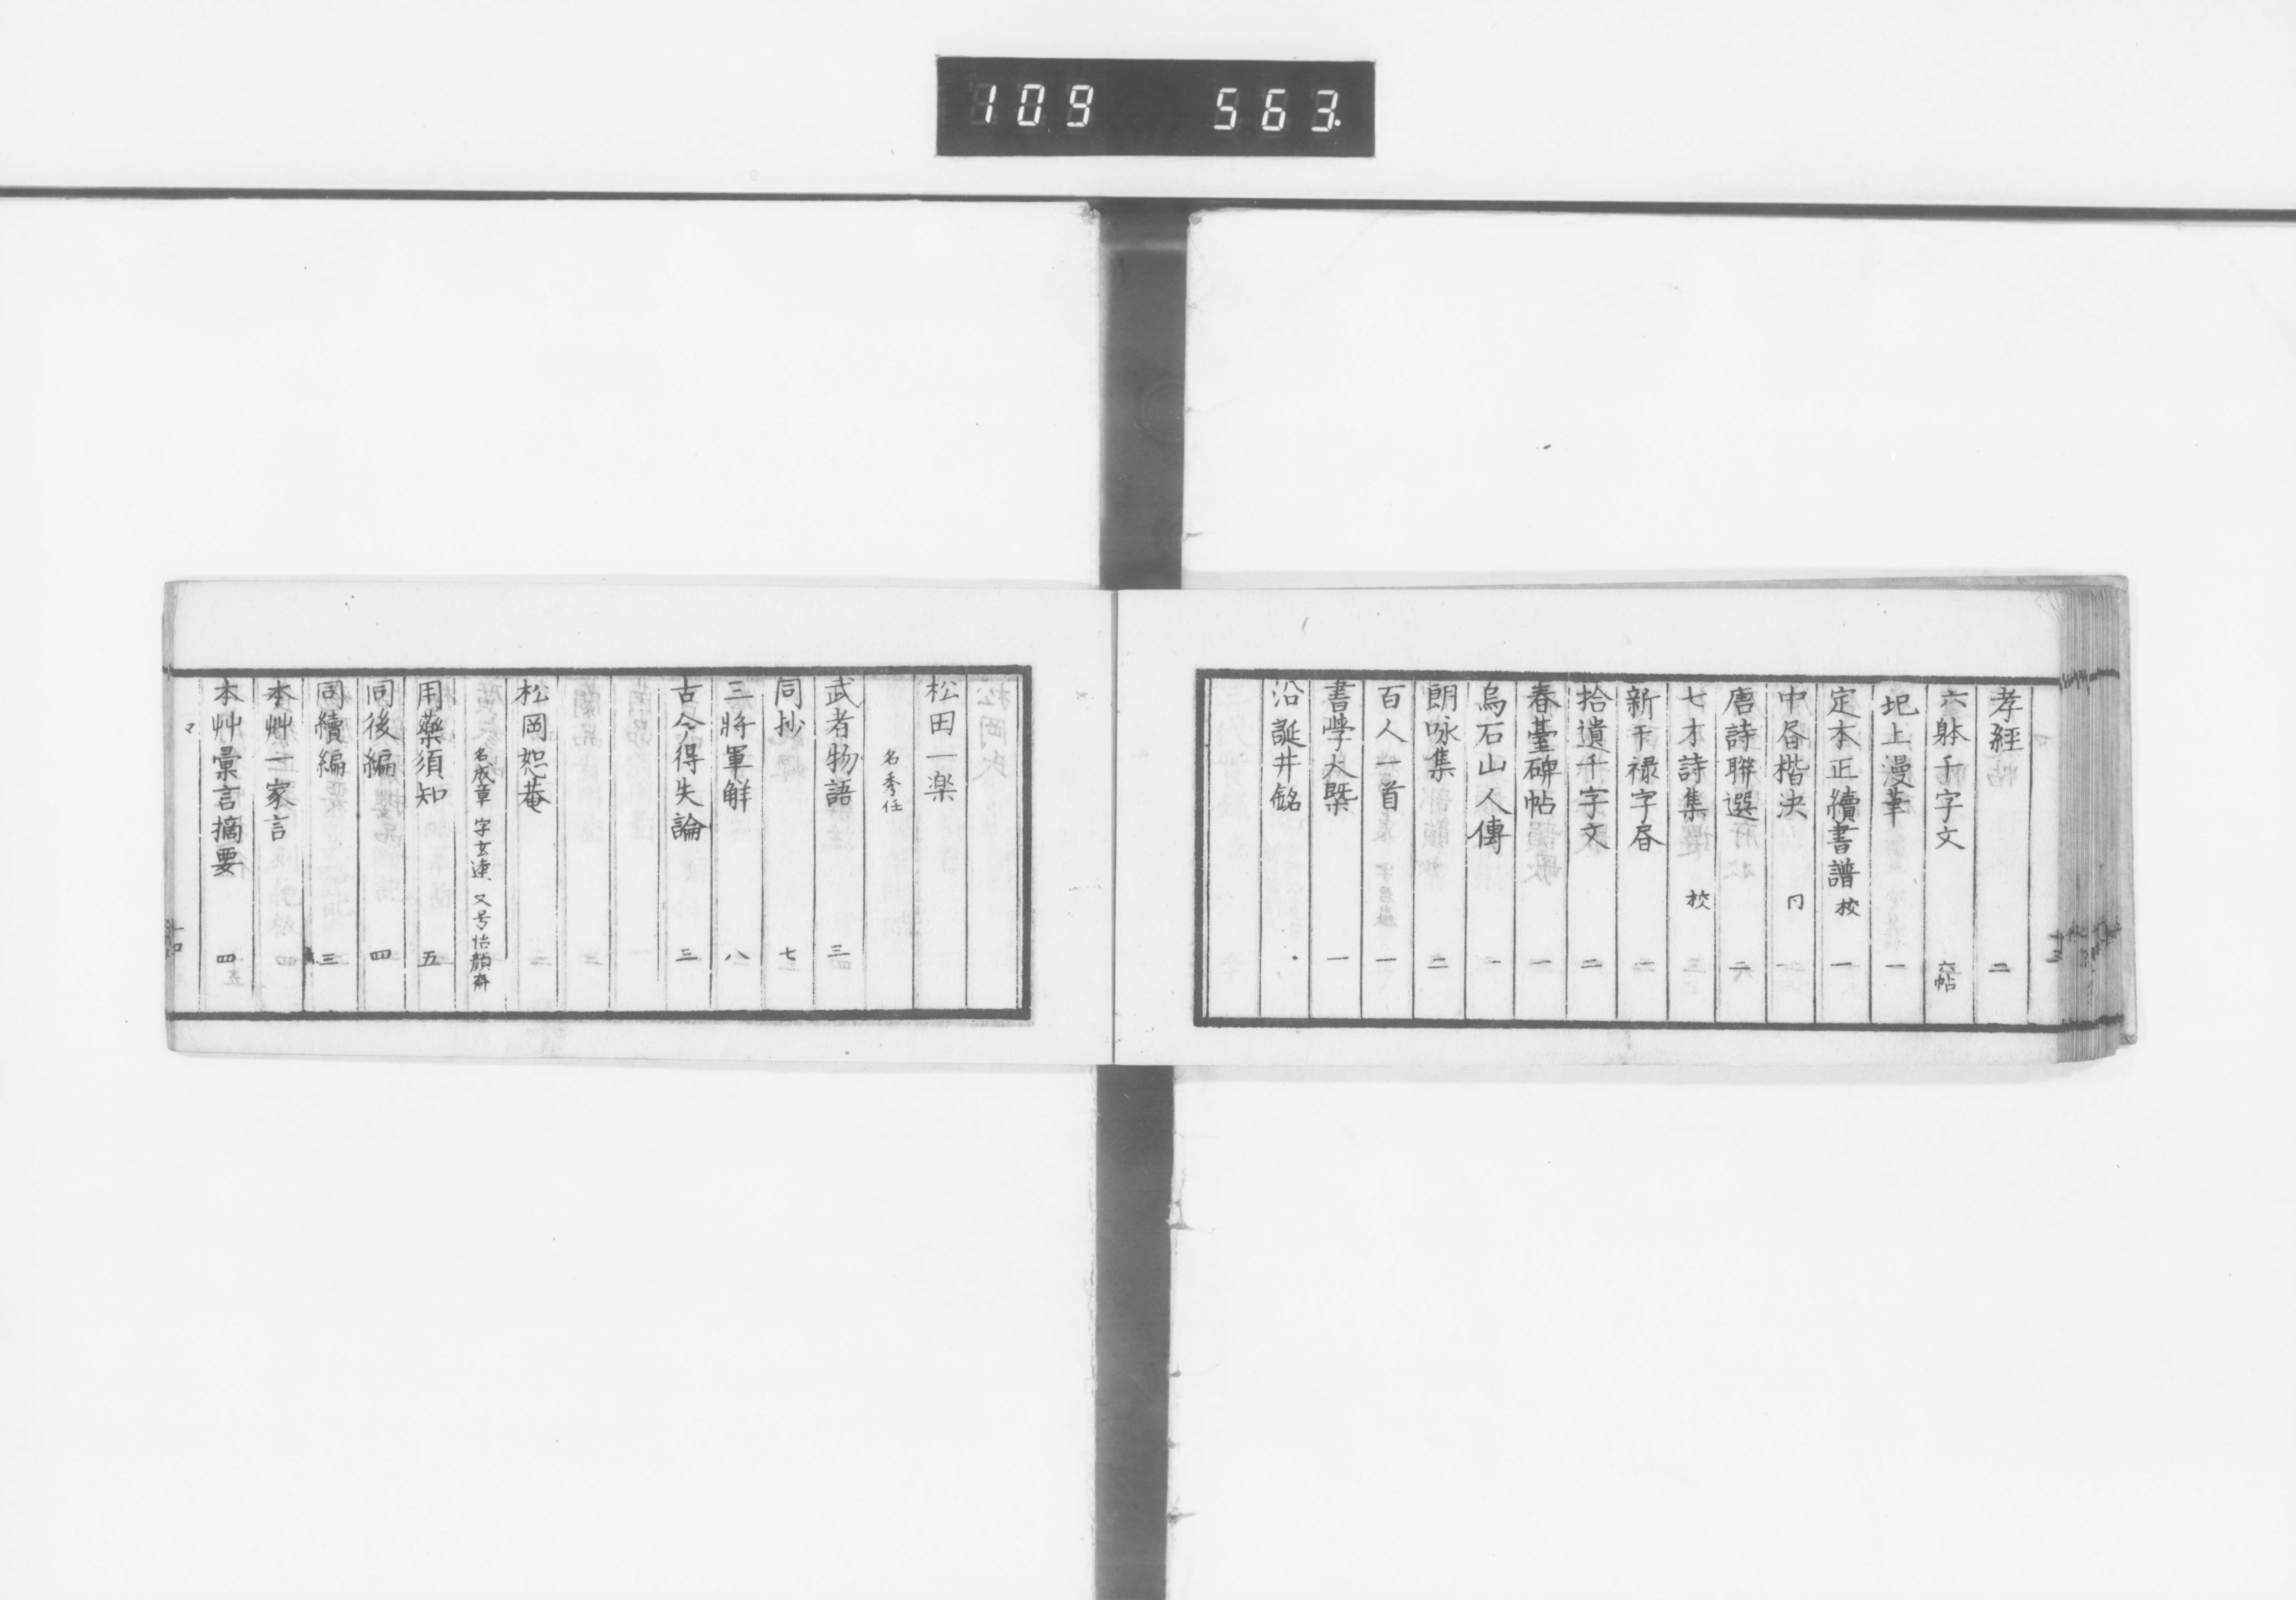 109 563
孝經 二
六躰千字文 六帖
圯上漫筆 一
定本正續書譜 校 一
中昏楷決 冂 一
唐詩聯選 六
七才詩集 校 三
新干禄字昏 二
拾遺千字文 二
春臺碑帖 一
烏石山人傳 一
朗咏集 二
百人一首 一
書學大槩 一
沿誕井銘
松田一楽
名秀任
武者物語 三
同抄 七
三將軍解 八
古今得失論 三
松岡恕菴
名成章 字玄達 又号怡顔斎
用藥須知 五
同後編 四
同續編 三
本艸一家言
本艸彙言摘要 四